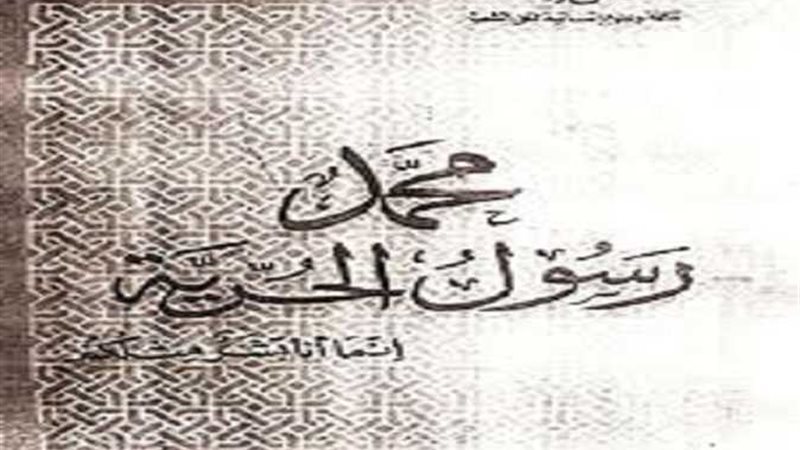 محمَّدٌ
رَسُولُ الحُرِّيَّة
إنما أنا بشر مثلكم